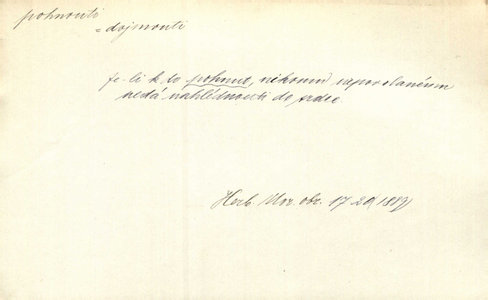 pohnouti
= dojmouti
je-li kdo pohnut, nikomu nepovolanému
nedá nahlédnouti do srdce
Herb. Mor. obr. 17 20/1889